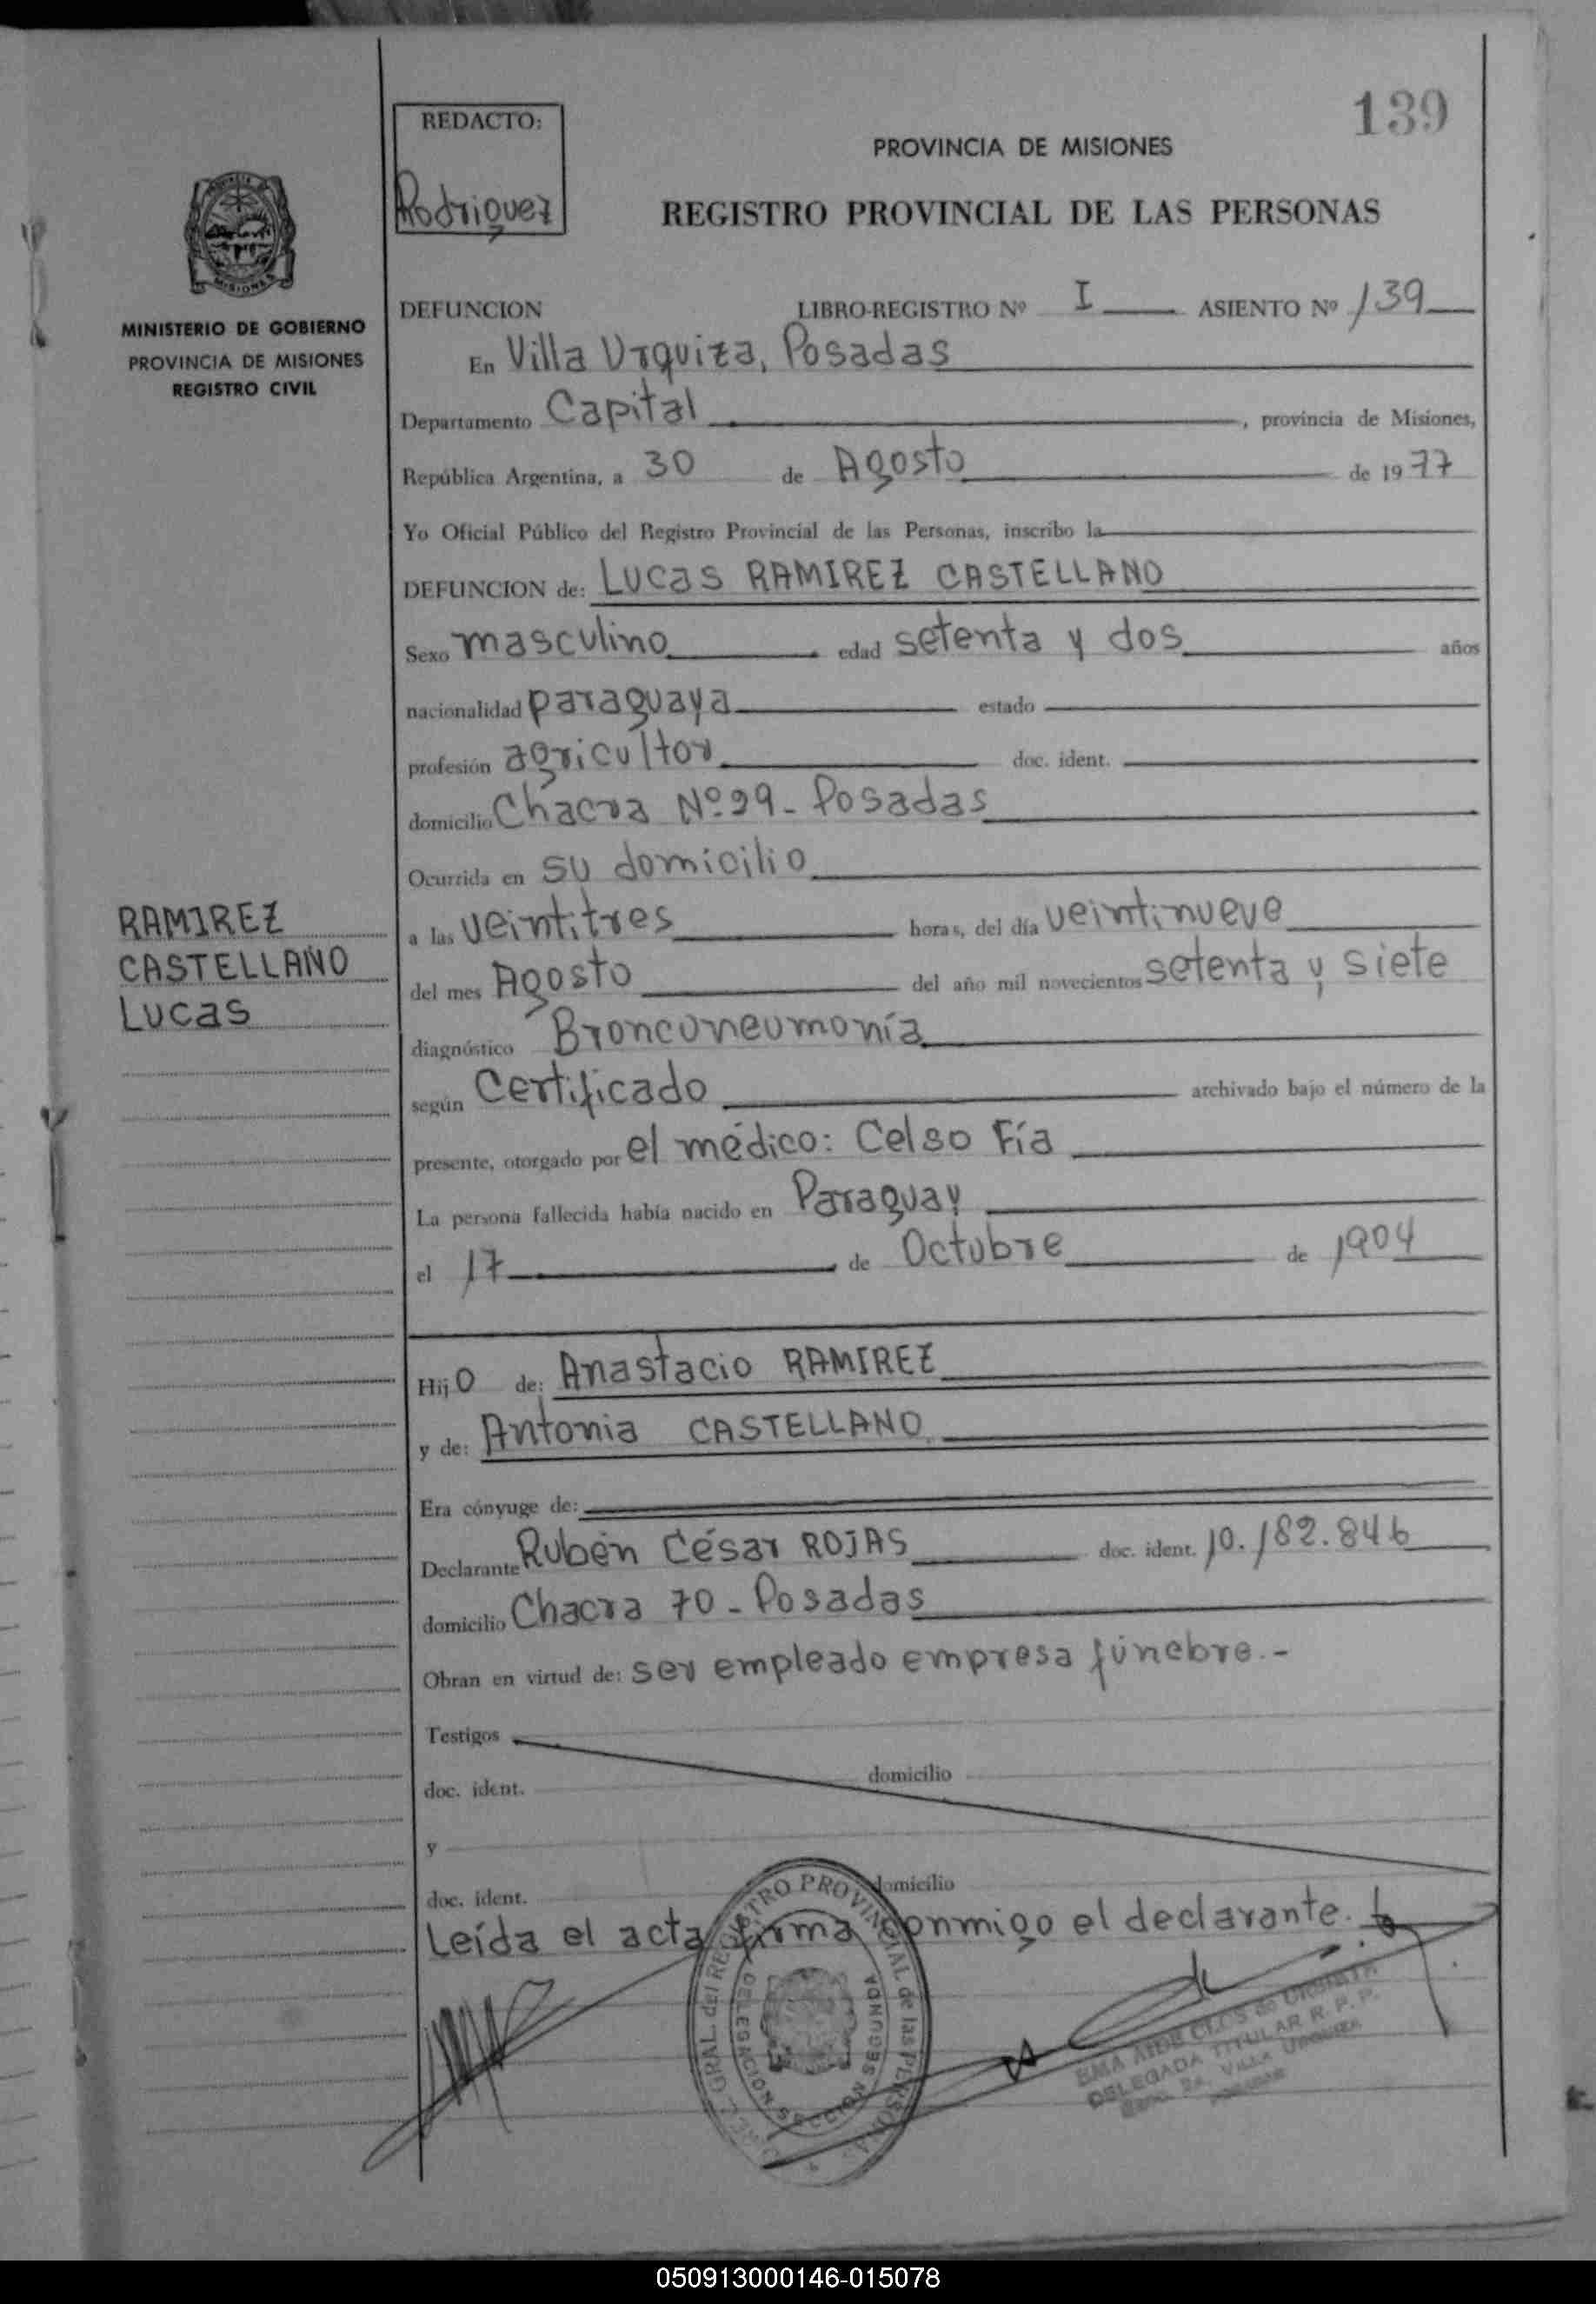 139
REDACTO:
Rodriguez
PROVINCIA DE MISIONES
REGISTRO PROVINCIAL DE LAS PERSONAS
MINISTERIO DE GOBIERNO
PROVINCIA DE MISIONES
REGISTRO CIVIL
DEFUNCION LIBRO-REGISTRO Nº I ASIENTO Nº 139
En Villa Urquiza, Posadas
Departamento Capital, provincia de Misiones,
República Argentina, a 30 de Agosto de 1977
Yo Oficial Público del Registro Provincial de las Personas, inscribo la
DEFUNCION de: Lucas RAMIREZ CASTELLANO
Sexo masculino edad setenta y dos años
nacionalidad paraguaya estado
profesión agricultor doc. ident.
domicilio Chacra Nº 29 - Posadas
Ocurrida en su domicilio
RAMIREZ
CASTELLANO
Lucas
a las veintitres horas, del día veintinueve
del mes Agosto del año mil novecientos setenta y siete
diagnóstico Bronconeumonía
según Certificado archivado bajo el número de la
presente, otorgado por el médico: Celso Fía
La persona fallecida había nacido en Paraguay
el 17 de Octubre de 1904
Hijo de: Anastacio RAMIREZ
y de: Antonia CASTELLANO
Era cónyuge de:
Declarante Rubén César ROJAS doc. ident. 10.182.846
domicilio Chacra 70 - Posadas
Obran en virtud de: ser empleado empresa fúnebre.-
Testigos
doc. ident. domicilio
y
doc. ident. domicilio
Leída el acta firma conmigo el declarante.
GRAL. del REGISTRO PROVINCIAL de las PERSONAS
DELEGACION SECCION SEGUNDA
DELEGADA TITULAR R. P. P.
VILLA URQUIZA
050913000146-015078